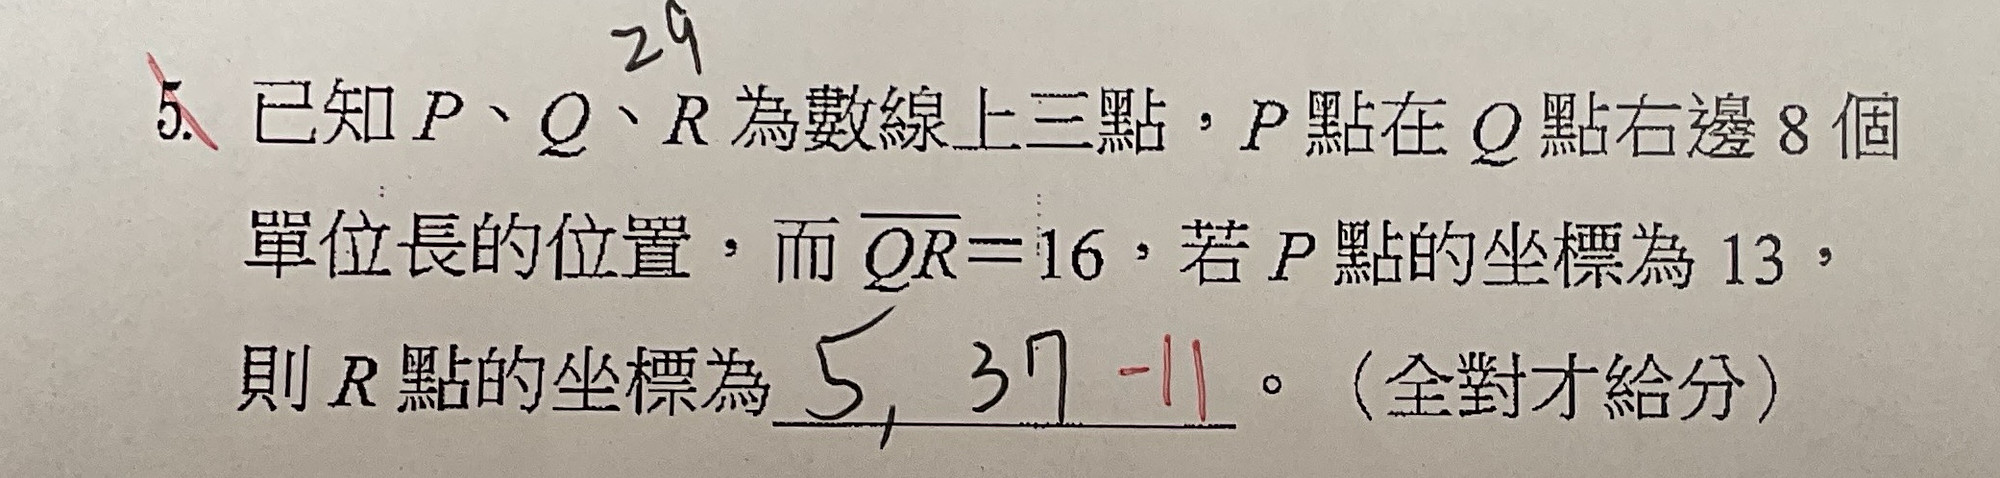 29
5. 已知 P、Q、R 為數線上三點，P 點在 Q 點右邊 8 個
單位長的位置，而 Q̅R̅＝16，若 P 點的坐標為 13，
則 R 點的坐標為 5, 37 -11 。（全對才給分）